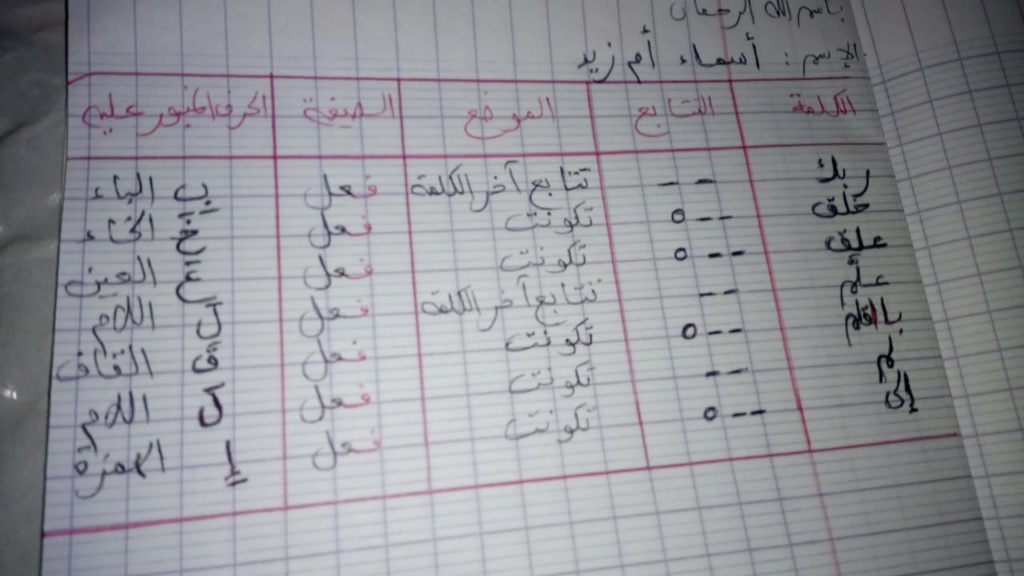 بسم الله الرحمان
الإسم : أسماء أم زيد
الكلمة التتابع الموضع الصيغة الحرف المنبور عليه
ربك -- تتابع آخر الكلمة فعل ب الباء
خلق --o تكونت فعل خ الخاء
علق --o تكونت فعل ع العين
علم -- تتابع آخر الكلمة فعل ل اللام
بالقلم --o تكونت فعل ق القاف
لم -- تكونت فعل ل اللام
إلى --o تكونت فعل إ الهمزة